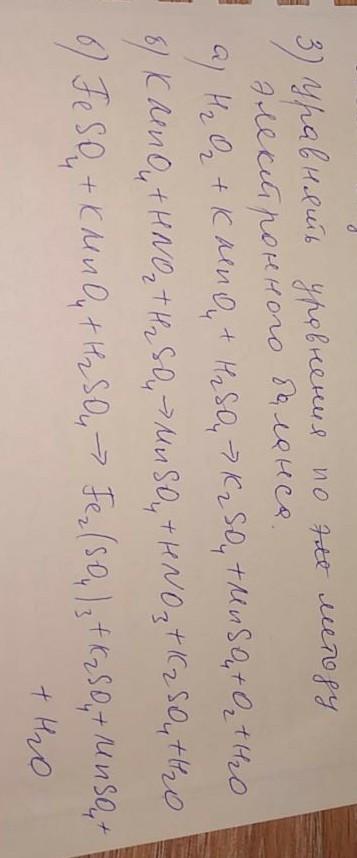 3) Уравнять уравнения по методу
электронного баланса.
а) H₂O₂ + KMnO₄ + H₂SO₄ → K₂SO₄ + MnSO₄ + O₂ + H₂O
в) KMnO₄ + HNO₂ + H₂SO₄ → MnSO₄ + HNO₃ + K₂SO₄ + H₂O
б) FeSO₄ + KMnO₄ + H₂SO₄ → Fe₂(SO₄)₃ + K₂SO₄ + MnSO₄ +
+ H₂O